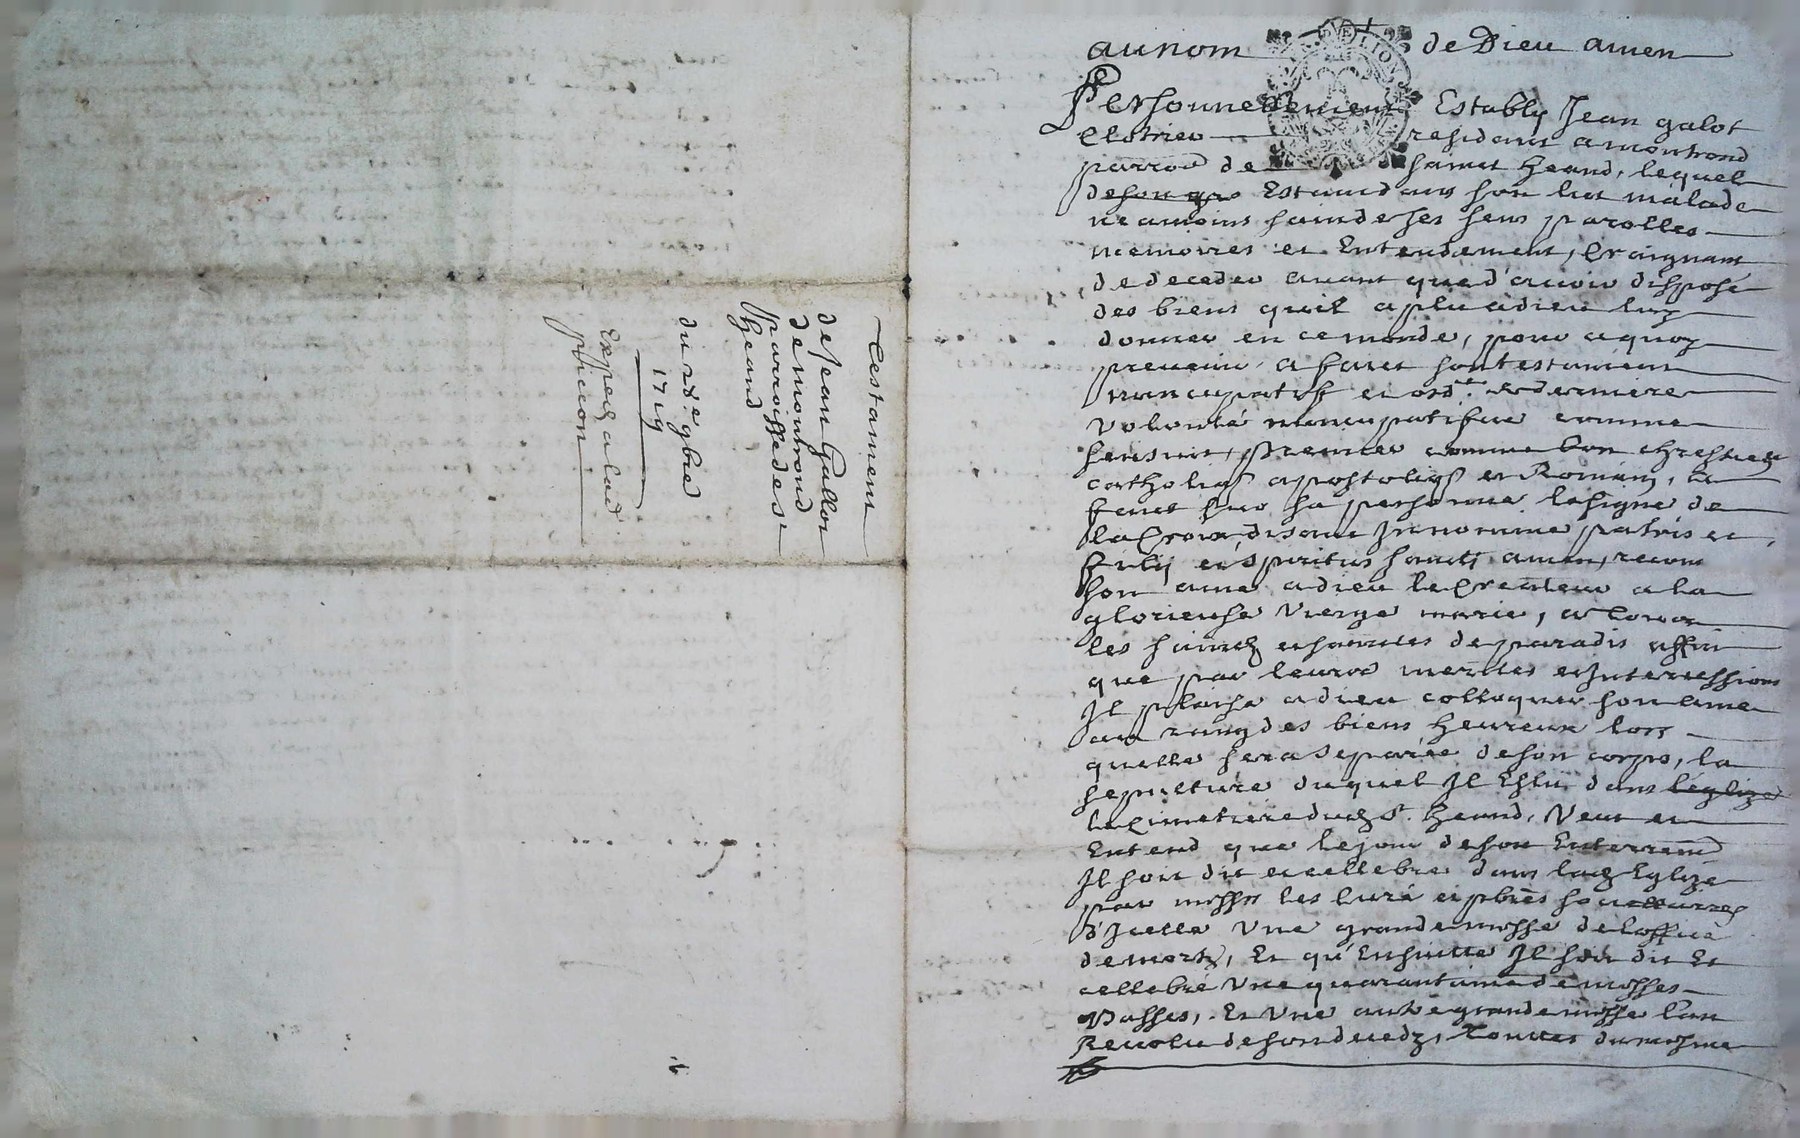 Testament
de Jean Gallot
de montrond
parroisse de st
heand
du 28e 9bre
1719
Exped a lad
au nom de Dieu amen
Personnellement Estably Jean galot
clostrier residant a montrond
parroe de sainct heand, lequel
de son gre Estand dans son lict malade
neamoins sain de ses sens parolles
memoires et Entendement, Craignant
de deceder avant que d'avoir disposé
des biens quil a plu a dieu luy
donner en ce monde, pour a quoy
prevenir a faict son testament
nuncupatif et ordre. et derniere
volonté nuncupatifve comme
sensuit, premier comme bon chrestien
catholiq apostoliq et Romain, a
faict sur sa personne le signe de
la Croix, disant In nomine patris et
filij et spiritus sancti amen, recom
son ame a dieu le Createur a la
glorieuse vierge marie, a tous
les saincts et sainctes de paradis affin
que par leurs merites et Intercessions
Il plaise a dieu colloquer son ame
au rang des biens heureux lors
quelle sera separée de son corps, la
sepulture duquel Il Eslit dans l'eglize
le Cimetiere dud st. heand, Veut et
Entend que le jour de son Enterremt
Il soit dit et cellebre dans lad Eglize
par mess les curé et pbres
d'Icelle Une grande messe de l'office
de morts, Et qu'Ensuitte Il soit dit Et
cellebré Une quarantaine de messes
Basses, Et Une autre grande messe l'an
Revolu de son deceds, touttes du mesme